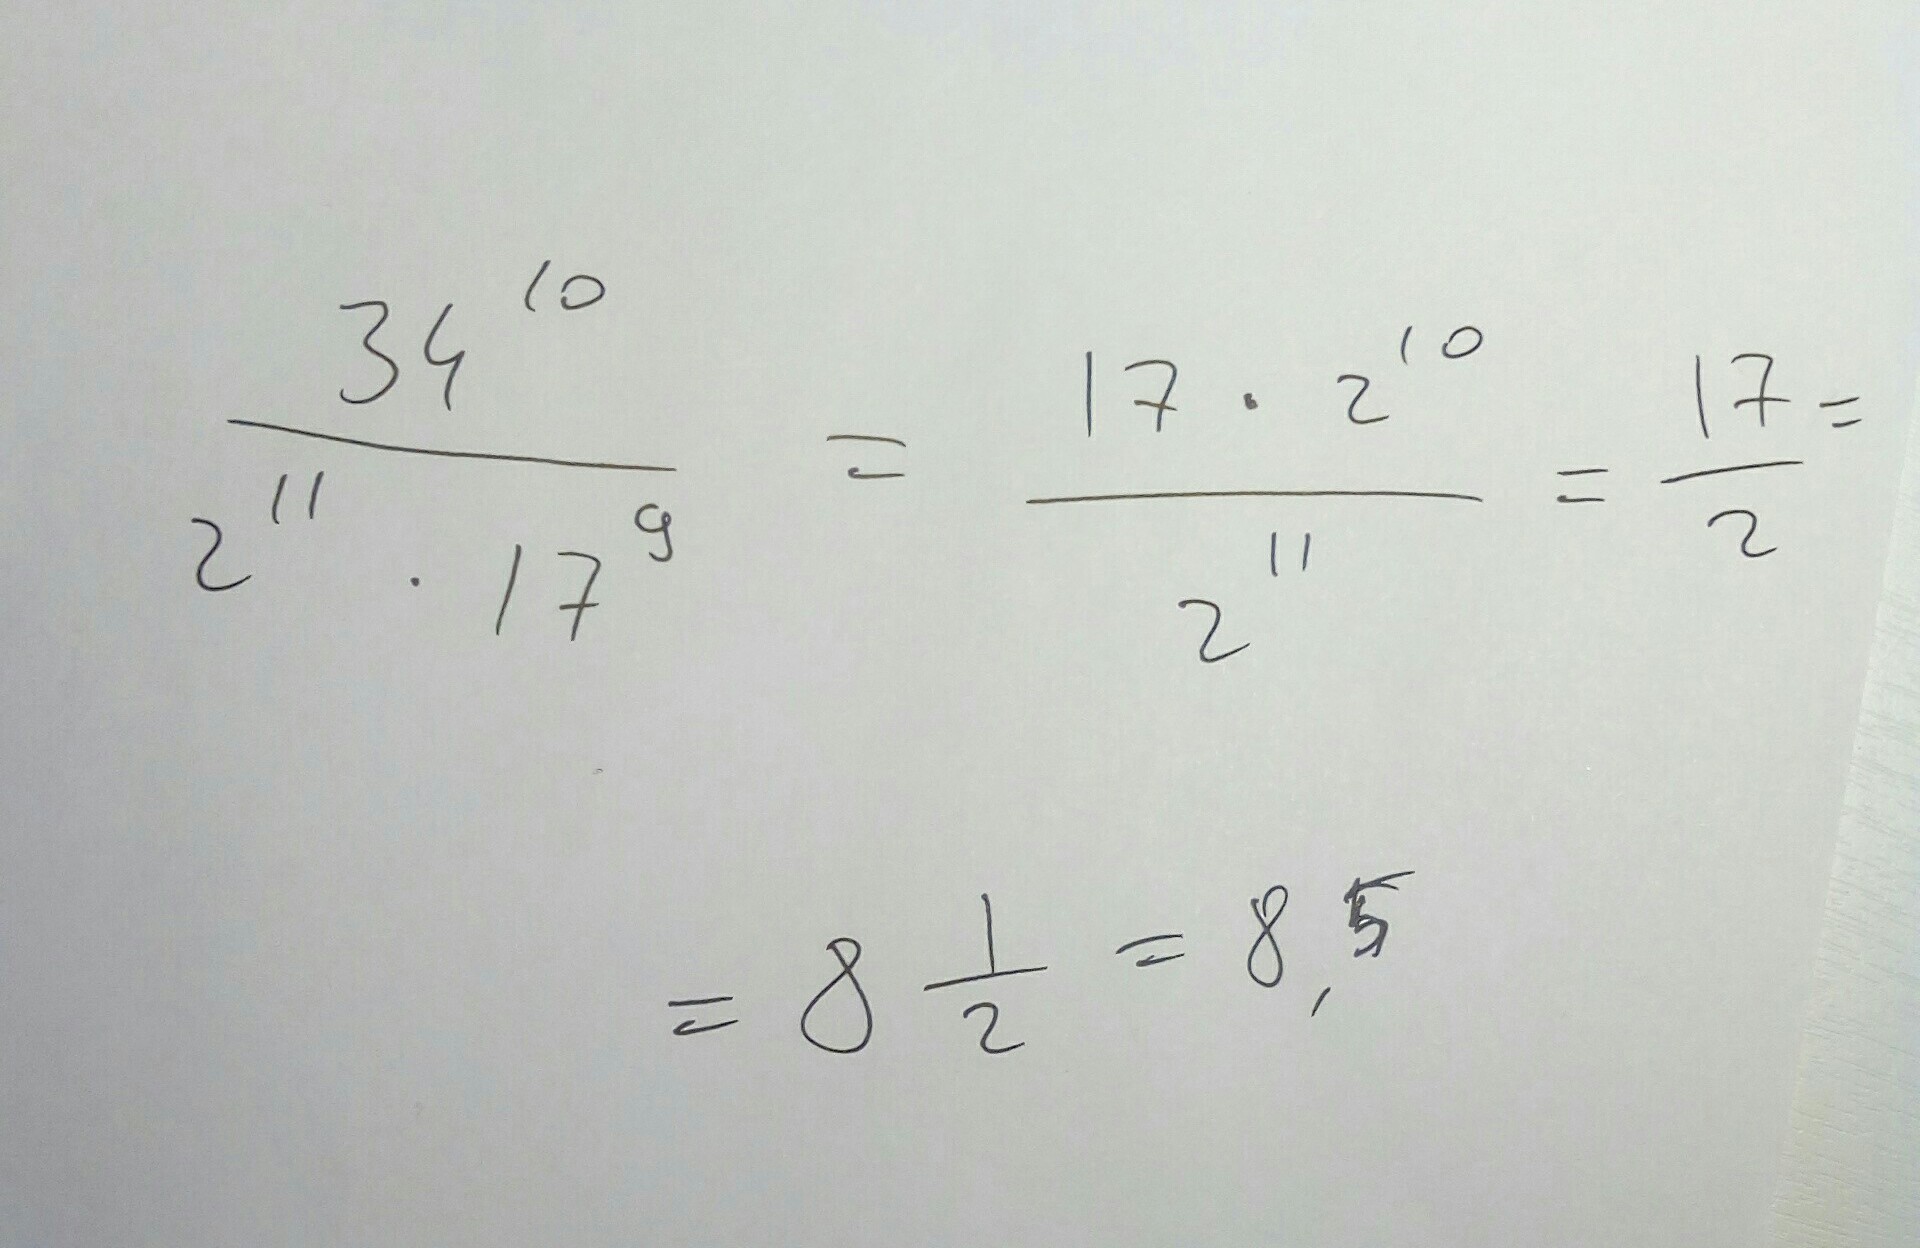 34^10 / (2^11 · 17^9) = (17 · 2^10) / 2^11 = 17/2 =
= 8 1/2 = 8,5